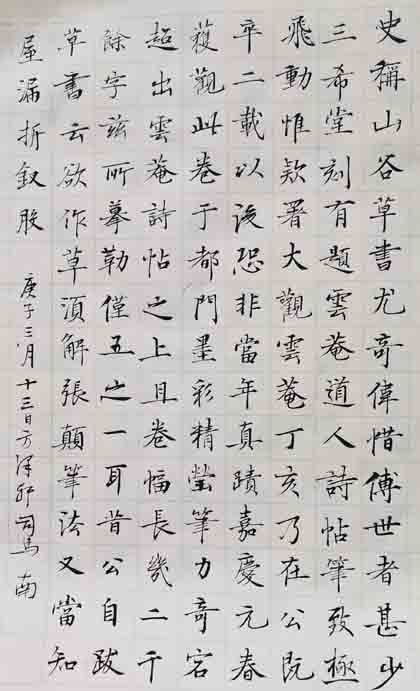 史稱山谷草書尤奇偉惜傳世者甚少
三希堂刻有題雲菴道人詩帖筆致極
飛動惟款署大觀雲菴丁亥乃在公既
卒二載以後恐非當年真蹟嘉慶元春
獲觀此卷于都門墨彩精瑩筆力奇宕
超出雲菴詩帖之上且卷幅長幾二千
餘字茲所摹勒僅五之一耳昔公自跋
草書云欲作草須解張顛筆法又當知
屋漏折釵股
庚子三月十三日方澤邨司馬南